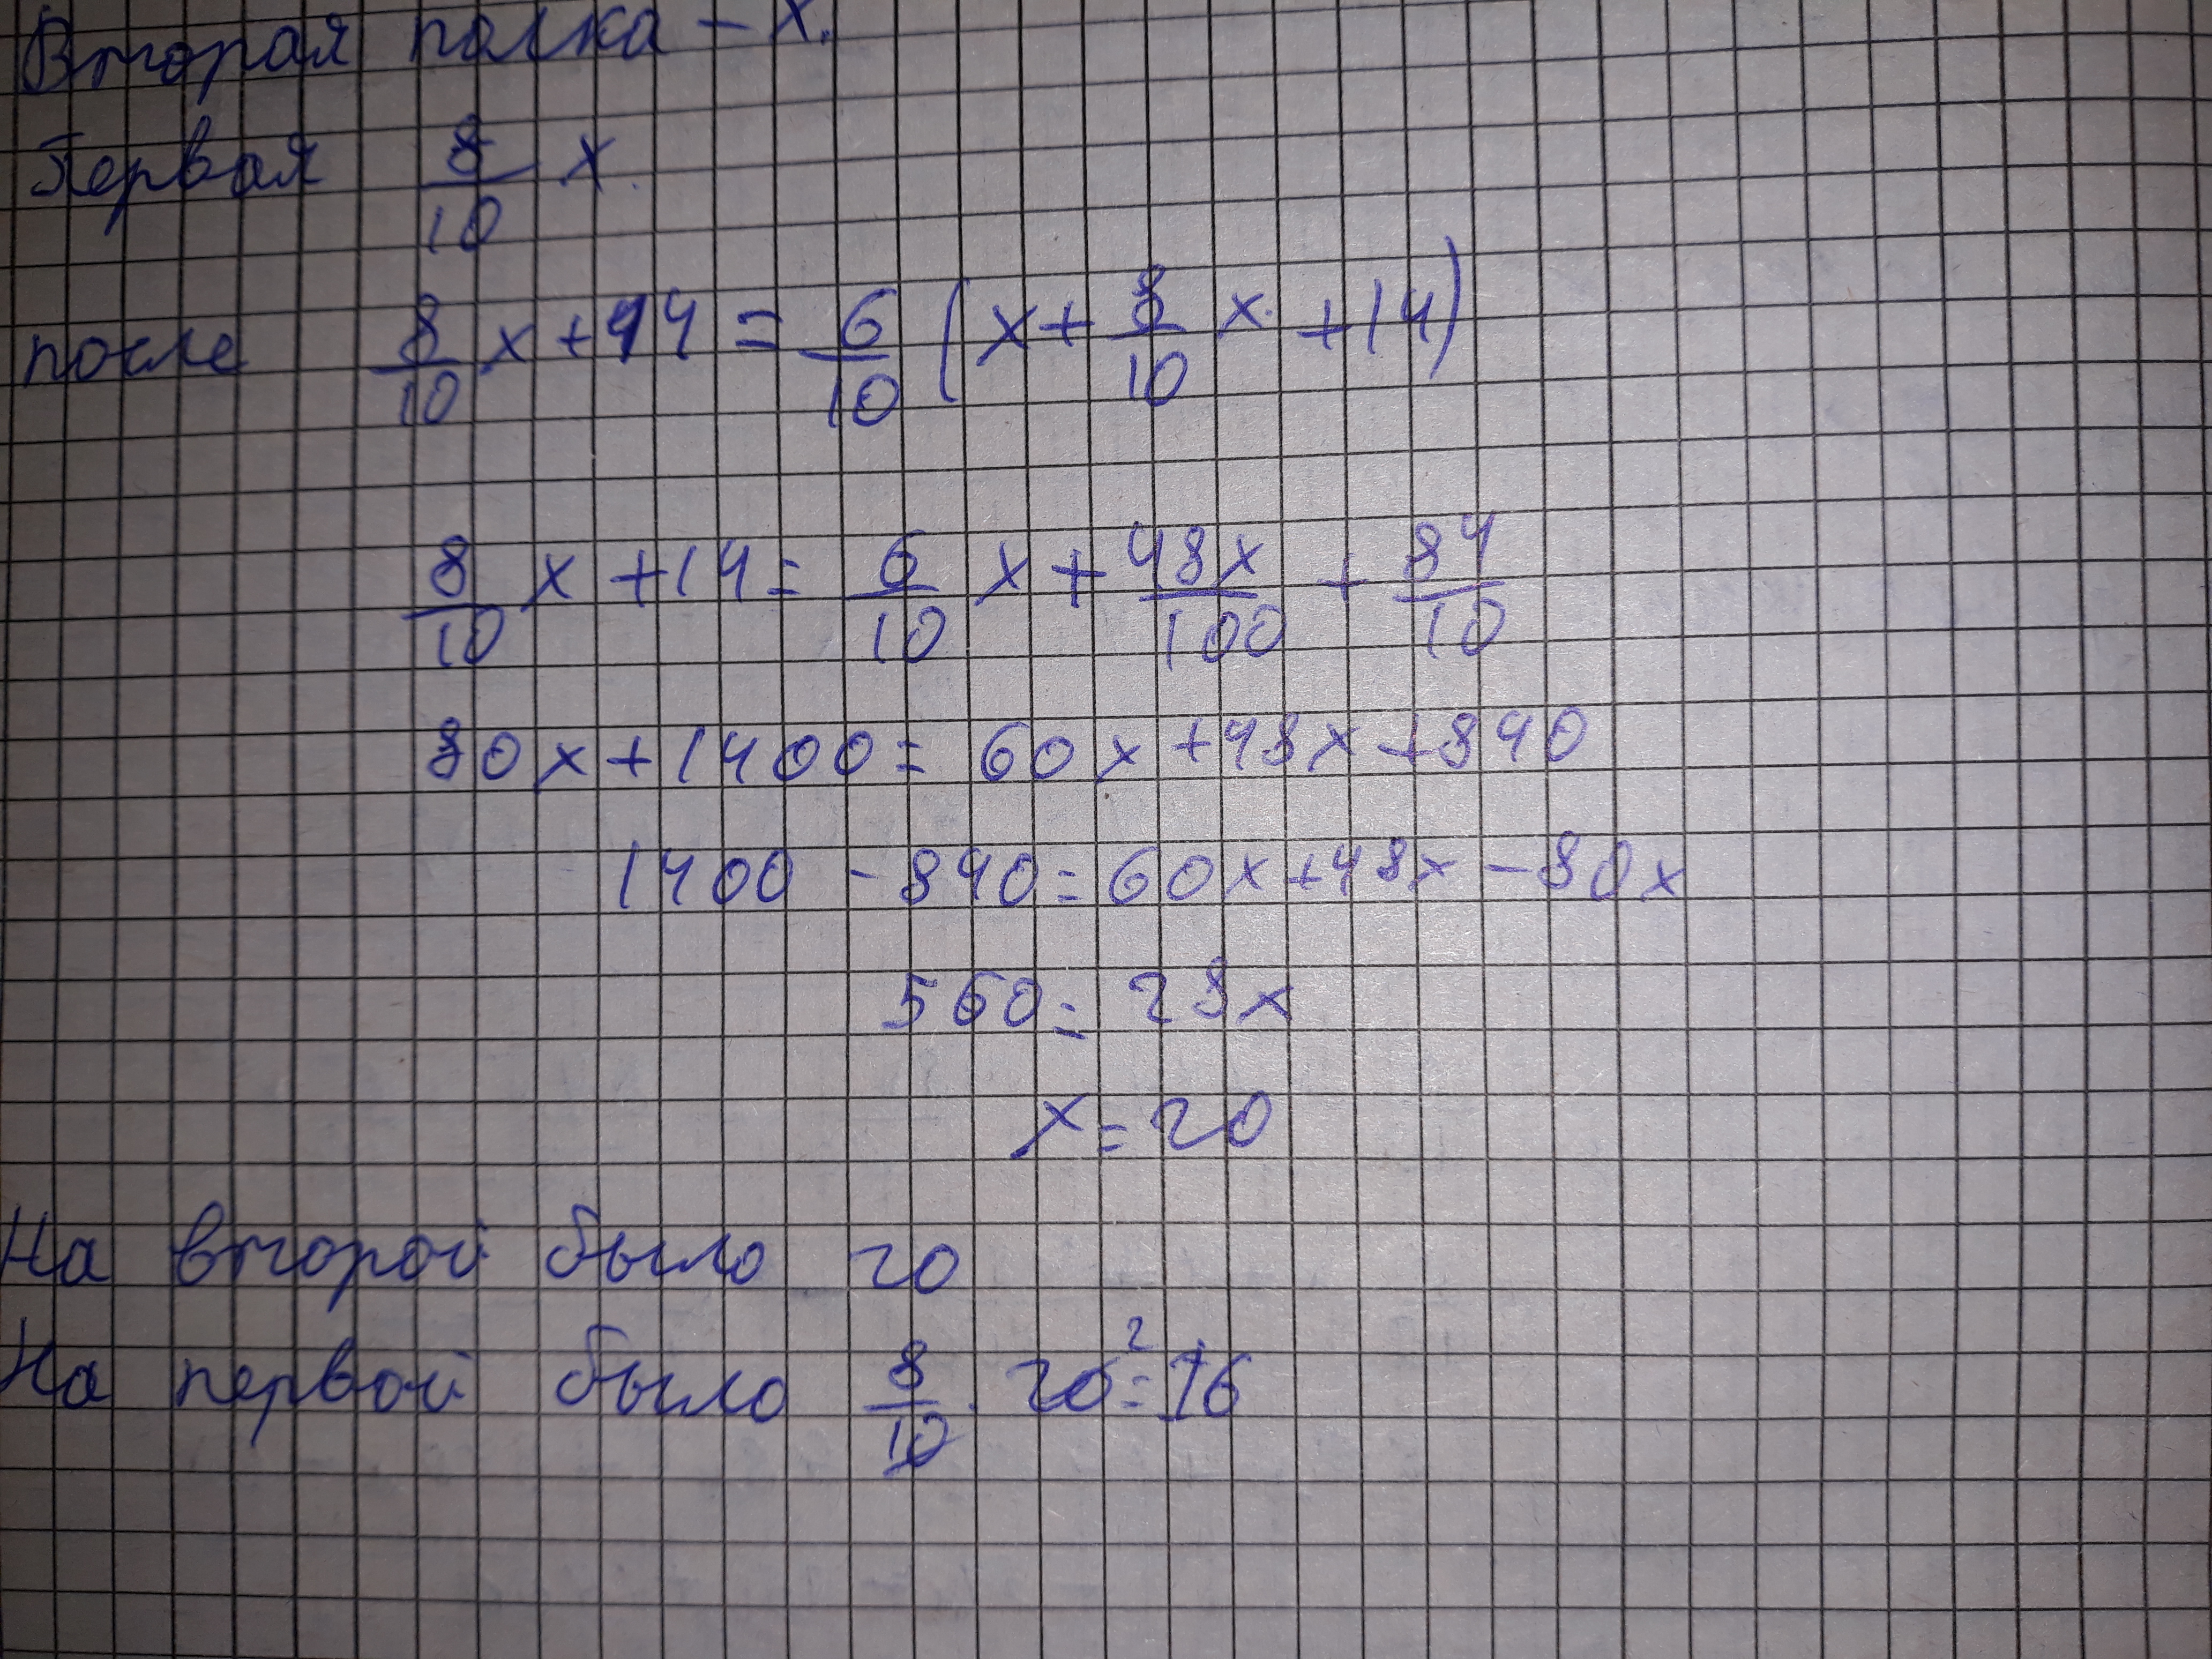 Вторая полка - х.
Первая 8/10 х.
после 8/10 х + 14 = 6/10 (х + 8/10 х + 14)
8/10 х + 14 = 6/10 х + 48х/100 + 84/10
80х + 1400 = 60х + 48х + 840
1400 - 840 = 60х + 48х - 80х
560 = 28х
х = 20
На второй было 20
На первой было 8/10 · 20 ² = 16